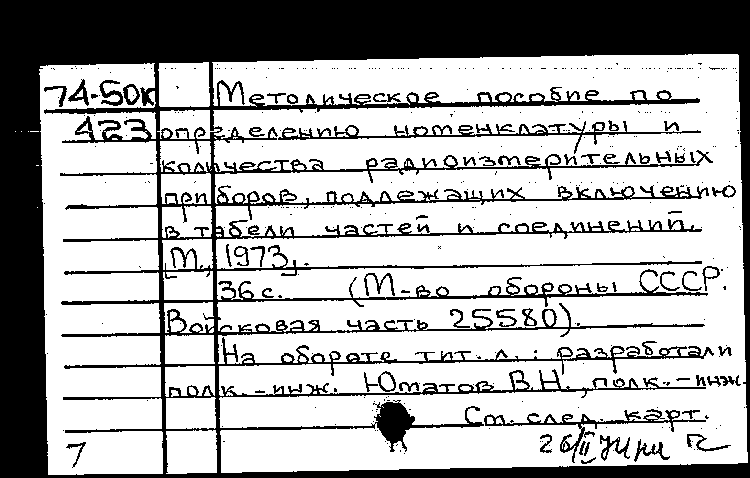 74-50к Методическое пособие по
423 определению номенклатуры и
количества радиоизмерительных
приборов, подлежащих включению
в табели частей и соединений.
[М., 1973].
36 с. (М-во обороны СССР.
Войсковая часть 25580).
На обороте тит. л.: разработали
полк.-инж. Юматов В.Н., полк.-инж.
Ст. след. карт.
7 26/II